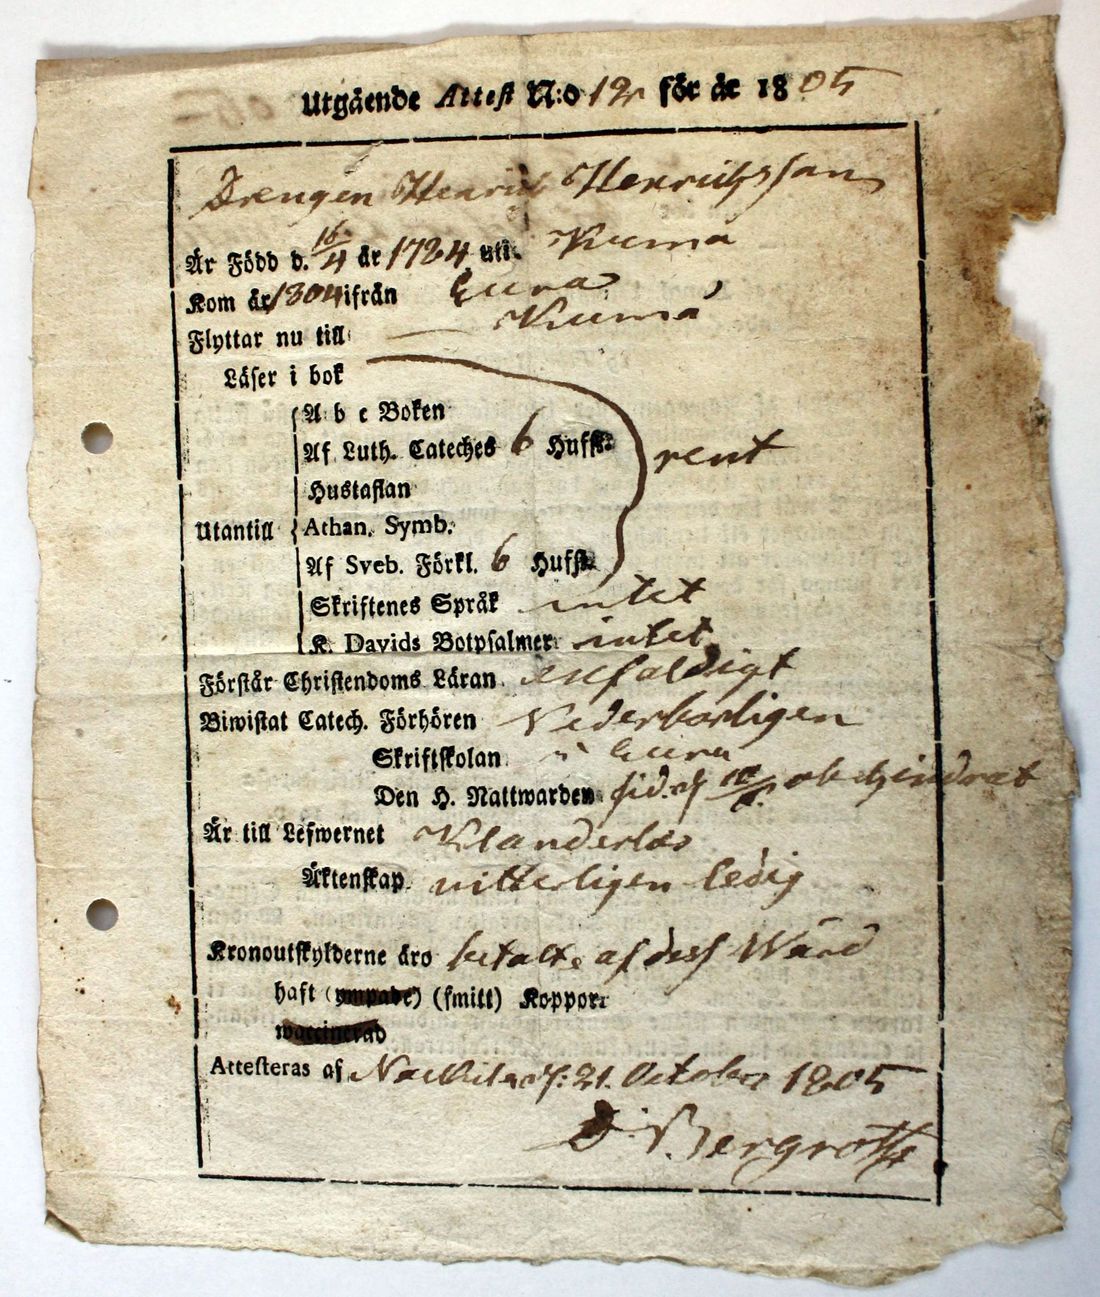 Utgående Attest N:o 12 för år 1805
Drengen Henric Henrichsson
Är Född d. 16/4 år 1784 uti Kumå
Kom år 1804 ifrån Eura
Flyttar nu till Kumå
Läser i bok
A b c Boken
Af Luth. Cateches 6 Hufst: rent
Hustaflan
Utantill Athan. Symb.
Af Sveb. Förkl. 6 Hufst:
Skriftenes Språk intet
K. Davids Botpsalmer intet
Förstår Christendoms Läran enfaldigt
Biwistat Catech. Förhören Vederbörligen
Skriftskolan i Eura
Den H. Nattwarden obehindrat
Är till Lefwernet Klanderlös
Äktenskap. vitterligen ledig
Kronoutskylderne äro betalte af dess Wärd
haft (ympade) (smitt) Koppor:
waccinerad
Attesteras af Nackila d: 21. Octobr 1805
D. Bergroth